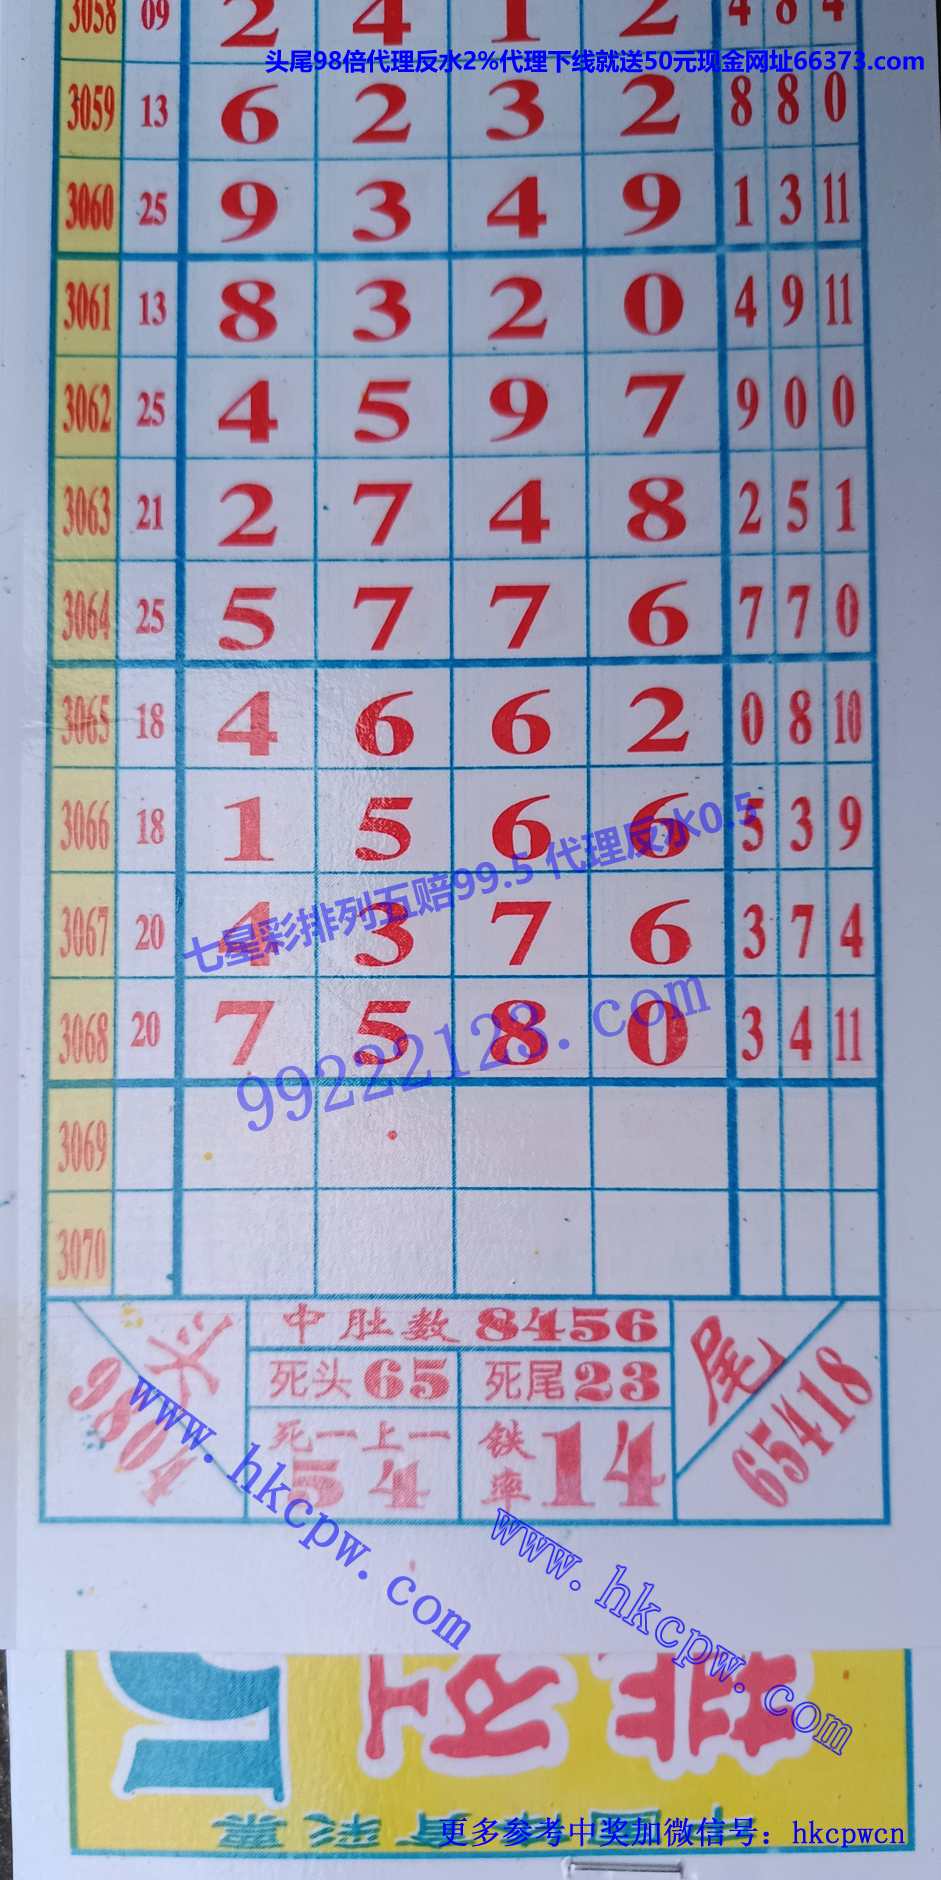 3058 09 2 4 1 2 4 8 4
头尾98倍代理反水2%代理下线就送50元现金网址66373.com
3059 13 6 2 3 2 8 8 0
3060 25 9 3 4 9 1 3 11
3061 13 8 3 2 0 4 9 11
3062 25 4 5 9 7 9 0 0
3063 21 2 7 4 8 2 5 1
3064 25 5 7 7 6 7 7 0
3065 18 4 6 6 2 0 8 10
3066 18 1 5 6 6 5 3 9
七星彩排列五赔99.5 代理反水0.5
3067 20 4 3 7 6 3 7 4
3068 20 7 5 8 0 3 4 11
99222123.com
3069
3070
头
中肚数 8456
尾
死头 65
死尾 23
65418
死一上一
5 4
铁率 14
www.hkcpw.com
www.hkcpw.com
排列
中国体育彩票
更多参考中奖加微信号：hkcpwcn